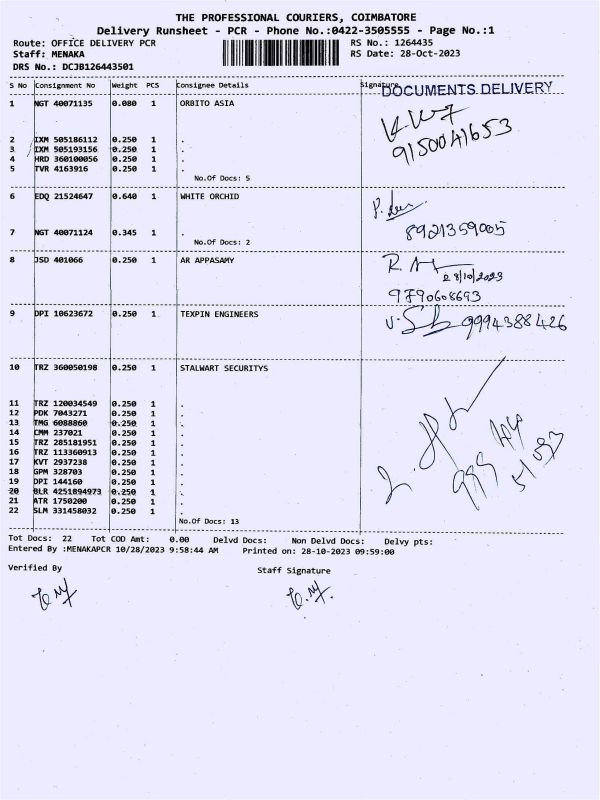 THE PROFESSIONAL COURIERS, COIMBATORE
Delivery Runsheet - PCR - Phone No.:0422-3505555 - Page No.:1
Route: OFFICE DELIVERY PCR RS No.: 1264435
Staff: MENAKA RS Date: 28-Oct-2023
DRS No.: DCJB126443501
S No Consignment No Weight PCS Consignee Details Signature
DOCUMENTS DELIVERY
1 NGT 40071135 0.080 1 ORBITO ASIA
9150041653
2 IXM 505186112 0.250 1 .
3 IXM 505193156 0.250 1 .
4 HRD 360100056 0.250 1 .
5 TVR 4163916 0.250 1 .
No.Of Docs: 5
6 EDQ 21524647 0.640 1 WHITE ORCHID
8921359005
7 NGT 40071124 0.345 1 .
No.Of Docs: 2
8 JSD 401066 0.250 1 AR APPASAMY
28/10/2023
9790608693
9 DPI 10623672 0.250 1 TEXPIN ENGINEERS
9994388426
10 TRZ 360050198 0.250 1 STALWART SECURITYS
11 TRZ 120034549 0.250 1 .
12 PDK 7043271 0.250 1 .
13 TMG 6088860 0.250 1 .
14 CMM 237021 0.250 1 .
15 TRZ 285181951 0.250 1 .
16 TRZ 113360913 0.250 1 .
17 KVT 2937238 0.250 1 .
18 GPM 328703 0.250 1 .
19 DPI 144160 0.250 1 .
20 BLR 4251894973 0.250 1 .
21 ATR 1750200 0.250 1 .
22 SLM 331458032 0.250 1 .
No.Of Docs: 13
Tot Docs: 22 Tot COD Amt: 0.00 Delvd Docs: Non Delvd Docs: Delvy pts:
Entered By :MENAKAPCR 10/28/2023 9:58:44 AM Printed on: 28-10-2023 09:59:00
Verified By Staff Signature